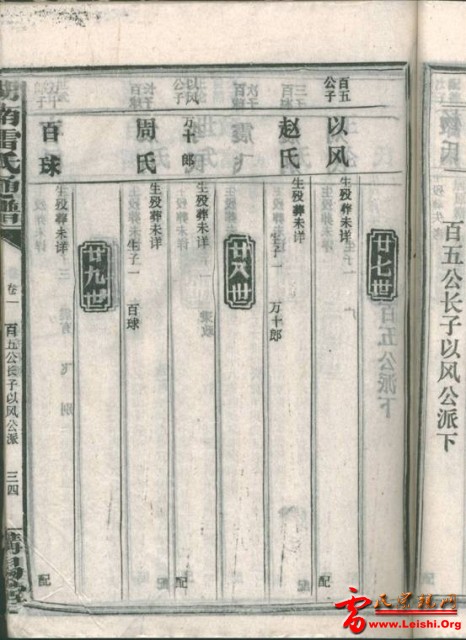 百五公长子以风公派下
廿七世
百五公子
以风 生殁葬未详 配
赵氏 生殁葬未详 生子一 万十郎
廿八世
以风公子
万十郎 生殁葬未详 配
周氏 生殁葬未详 生子一 百球
廿九世
百球 生殁葬未详 配
南雷氏通谱
卷一 百五公长子以风公派 三四
雷
www.Leishi.Org